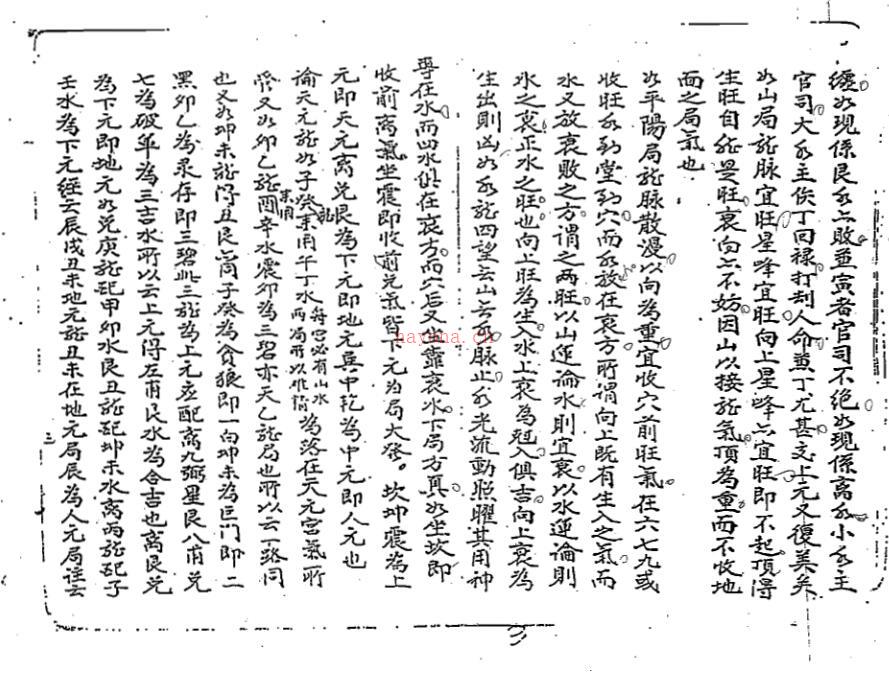 纏如現係艮水上敗並寅者官司不絕如現係离水小水主
官司大水主傷丁回祿打刼人命黃丁尤甚交上元又復美矣
如山局龍脉宜旺星峰宜旺向上星峰亦宜旺即不起頂得
生旺自能晏旺衰向亦不妨因山以接龍氣頂為重而不收地
面之局氣也
如平陽局龍脉散漫以向為重宜收穴前旺氣在六七九或
收旺水到堂到穴而水放在衰方所謂向上既有生入之氣而
水又放衰敗之方謂之两旺以山運論水則宜衰以水運論則
水之衰正水之旺也向上旺為生入水上衰為尅入俱吉向上衰為
生出則凶如水龍四望云山云水脉止水光流動照耀其用神
專在水而四水俱在衰方而穴后又坐靠衰水下局方真如坐坎即
收前离氣坐震即收前兑氣皆下元为局大发。坎坤震為上
元即天元离兑艮為下元即地元巽中乾為中元即人元也
論天元龍如子癸午丁水為落在天元宮氣所
管又如卯乙龍酉辛水震卯為三碧亦天乙龍局也所以云一路同
也又如坤未龍得丑艮向子癸為貪狼即一白坤未為巨门即二
黑卯乙為录存即三碧此三龍為上元应配离九弼星艮八甫兑
七為破军為三吉水所以云上元得左甫艮水為合吉也离艮兑
為下元即地元如兑庚龍配甲卯水艮丑龍配坤未水离丙龍配子
壬水為下元经云辰戌丑未地元龍丑未在地元局辰為人元局註云
三